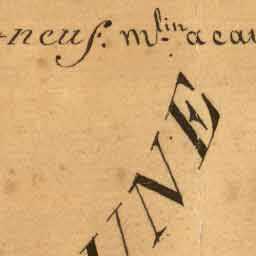 neuf. m.lin a cau
UNE